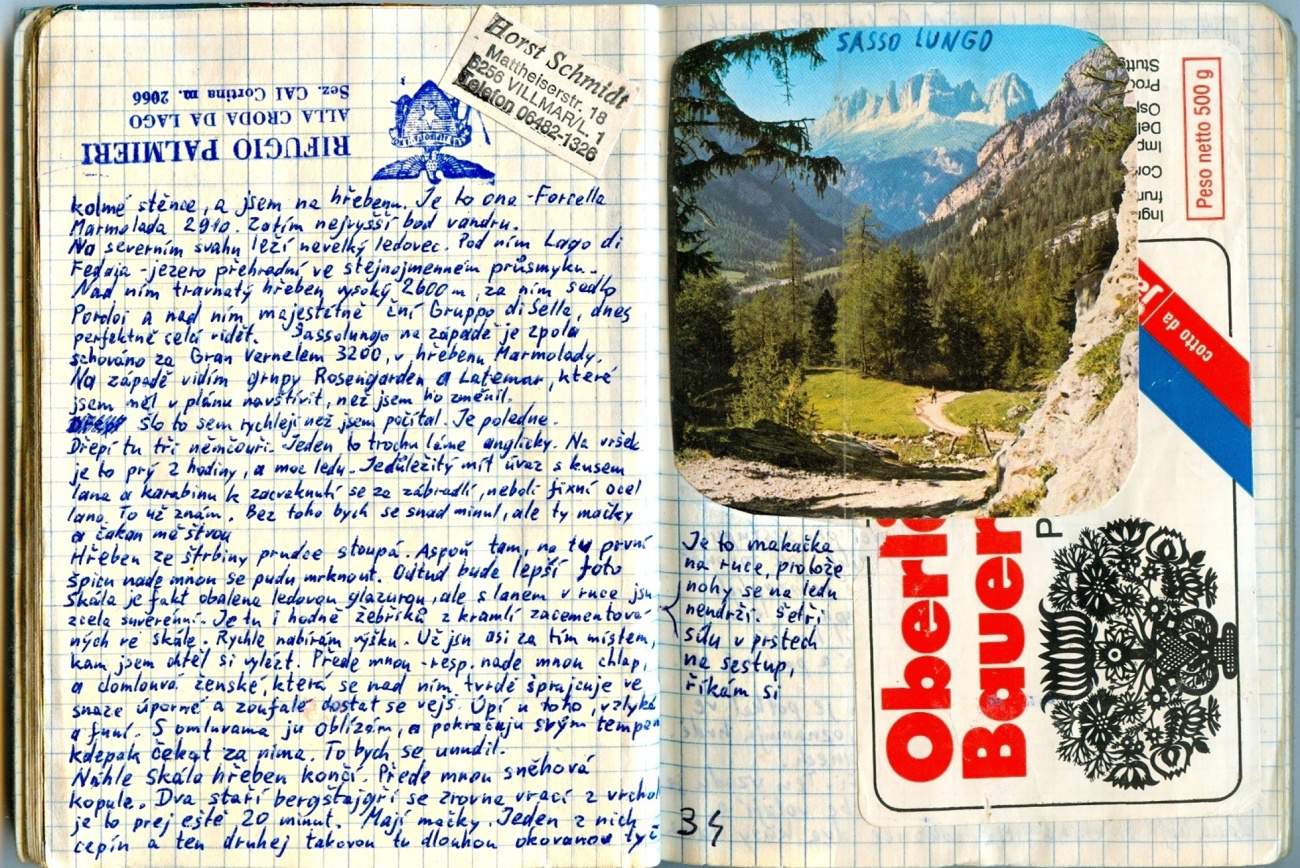 RIFUGIO PALMIERI
ALLA CRODA DA LAGO
Sez. CAI Cortina m. 2066
Horst Schmidt
Mattheiserstr. 18
6256 VILLMAR/L. 1
Telefon 06482-1326
kolmé stěnce, a jsem na hřebenu. Je to ona - Forcella
Marmolada 2910. Zatím nejvyšší bod vandru.
Na severním svahu leží nevelký ledovec. Pod ním Lago di
Fedaja - jezero přehradní ve stejnojmenném průsmyku.
Nad ním travnatý hřeben vysoký 2600 m, za ním sedlo
Pordoi a nad ním majestátně ční Gruppo di Sella, dnes
perfektně celá vidět. Sassolungo na západě je zpola
schováno za Gran Vernelem 3200, v hřebenu Marmolady.
Na západě vidím grupy Rosengarden a Latemar, které
jsem měl v plánu navštívit, než jsem ho změnil.
Šlo to sem rychleji než jsem počítal. Je poledne.
Dřepí tu tři němčouři. Jeden to trochu láme anglicky. Na vršek
je to prý 2 hodiny, a moc ledu. Je důležitý mít úvaz s kusem
lana a karabinu k zacvaknutí se za zábradlí, neboli fixní ocel
lano. To už znám. Bez toho bych se snad minul, ale ty mačky
a čakan mě štvou
Hřeben ze štrbiny prudce stoupá. Aspoň tam, na tu první
špicu nade mnou se pudu mrknout. Odtud bude lepší foto
Skála je fakt obalena ledovou glazurou, ale s lanem v ruce jsu
zcela suverénní. Je tu i hodně žebříků z kramlí zacementova
ných ve skále. Rychle nabírám výšku. Už jsu asi za tím místem,
kam jsem chtěl si vylézt. Přede mnou - resp. nade mnou chlap,
a domlouvá ženské, která se nad ním tvrdě šprajcuje ve
snaze úporné a zoufalé dostat se vejš. Úpí u toho, vzlyká
a funí. S omluvama ju oblízám, a pokračuju svým tempem
kdepak čekat za nima. To bych se unudil.
Náhle skála hřeben končí. Přede mnou sněhová
kopule. Dva staří bergštajgři se zrovna vrací z vrchol
je to prej eště 20 minut. Mají mačky. Jeden z nich
cepín a ten druhej takovou tu dlouhou okovanou tyč
SASSO LUNGO
Je to makačka
na ruce, protože
nohy se na ledu
nendrží. Šetři
sílu v prstech
na sestup,
říkám si
34
Peso netto 500 g
cotto da
ja
Oberl
Bauer
P
Stuttg
Prou
Ost
Dell
Imp
Cor
frum
Ingr